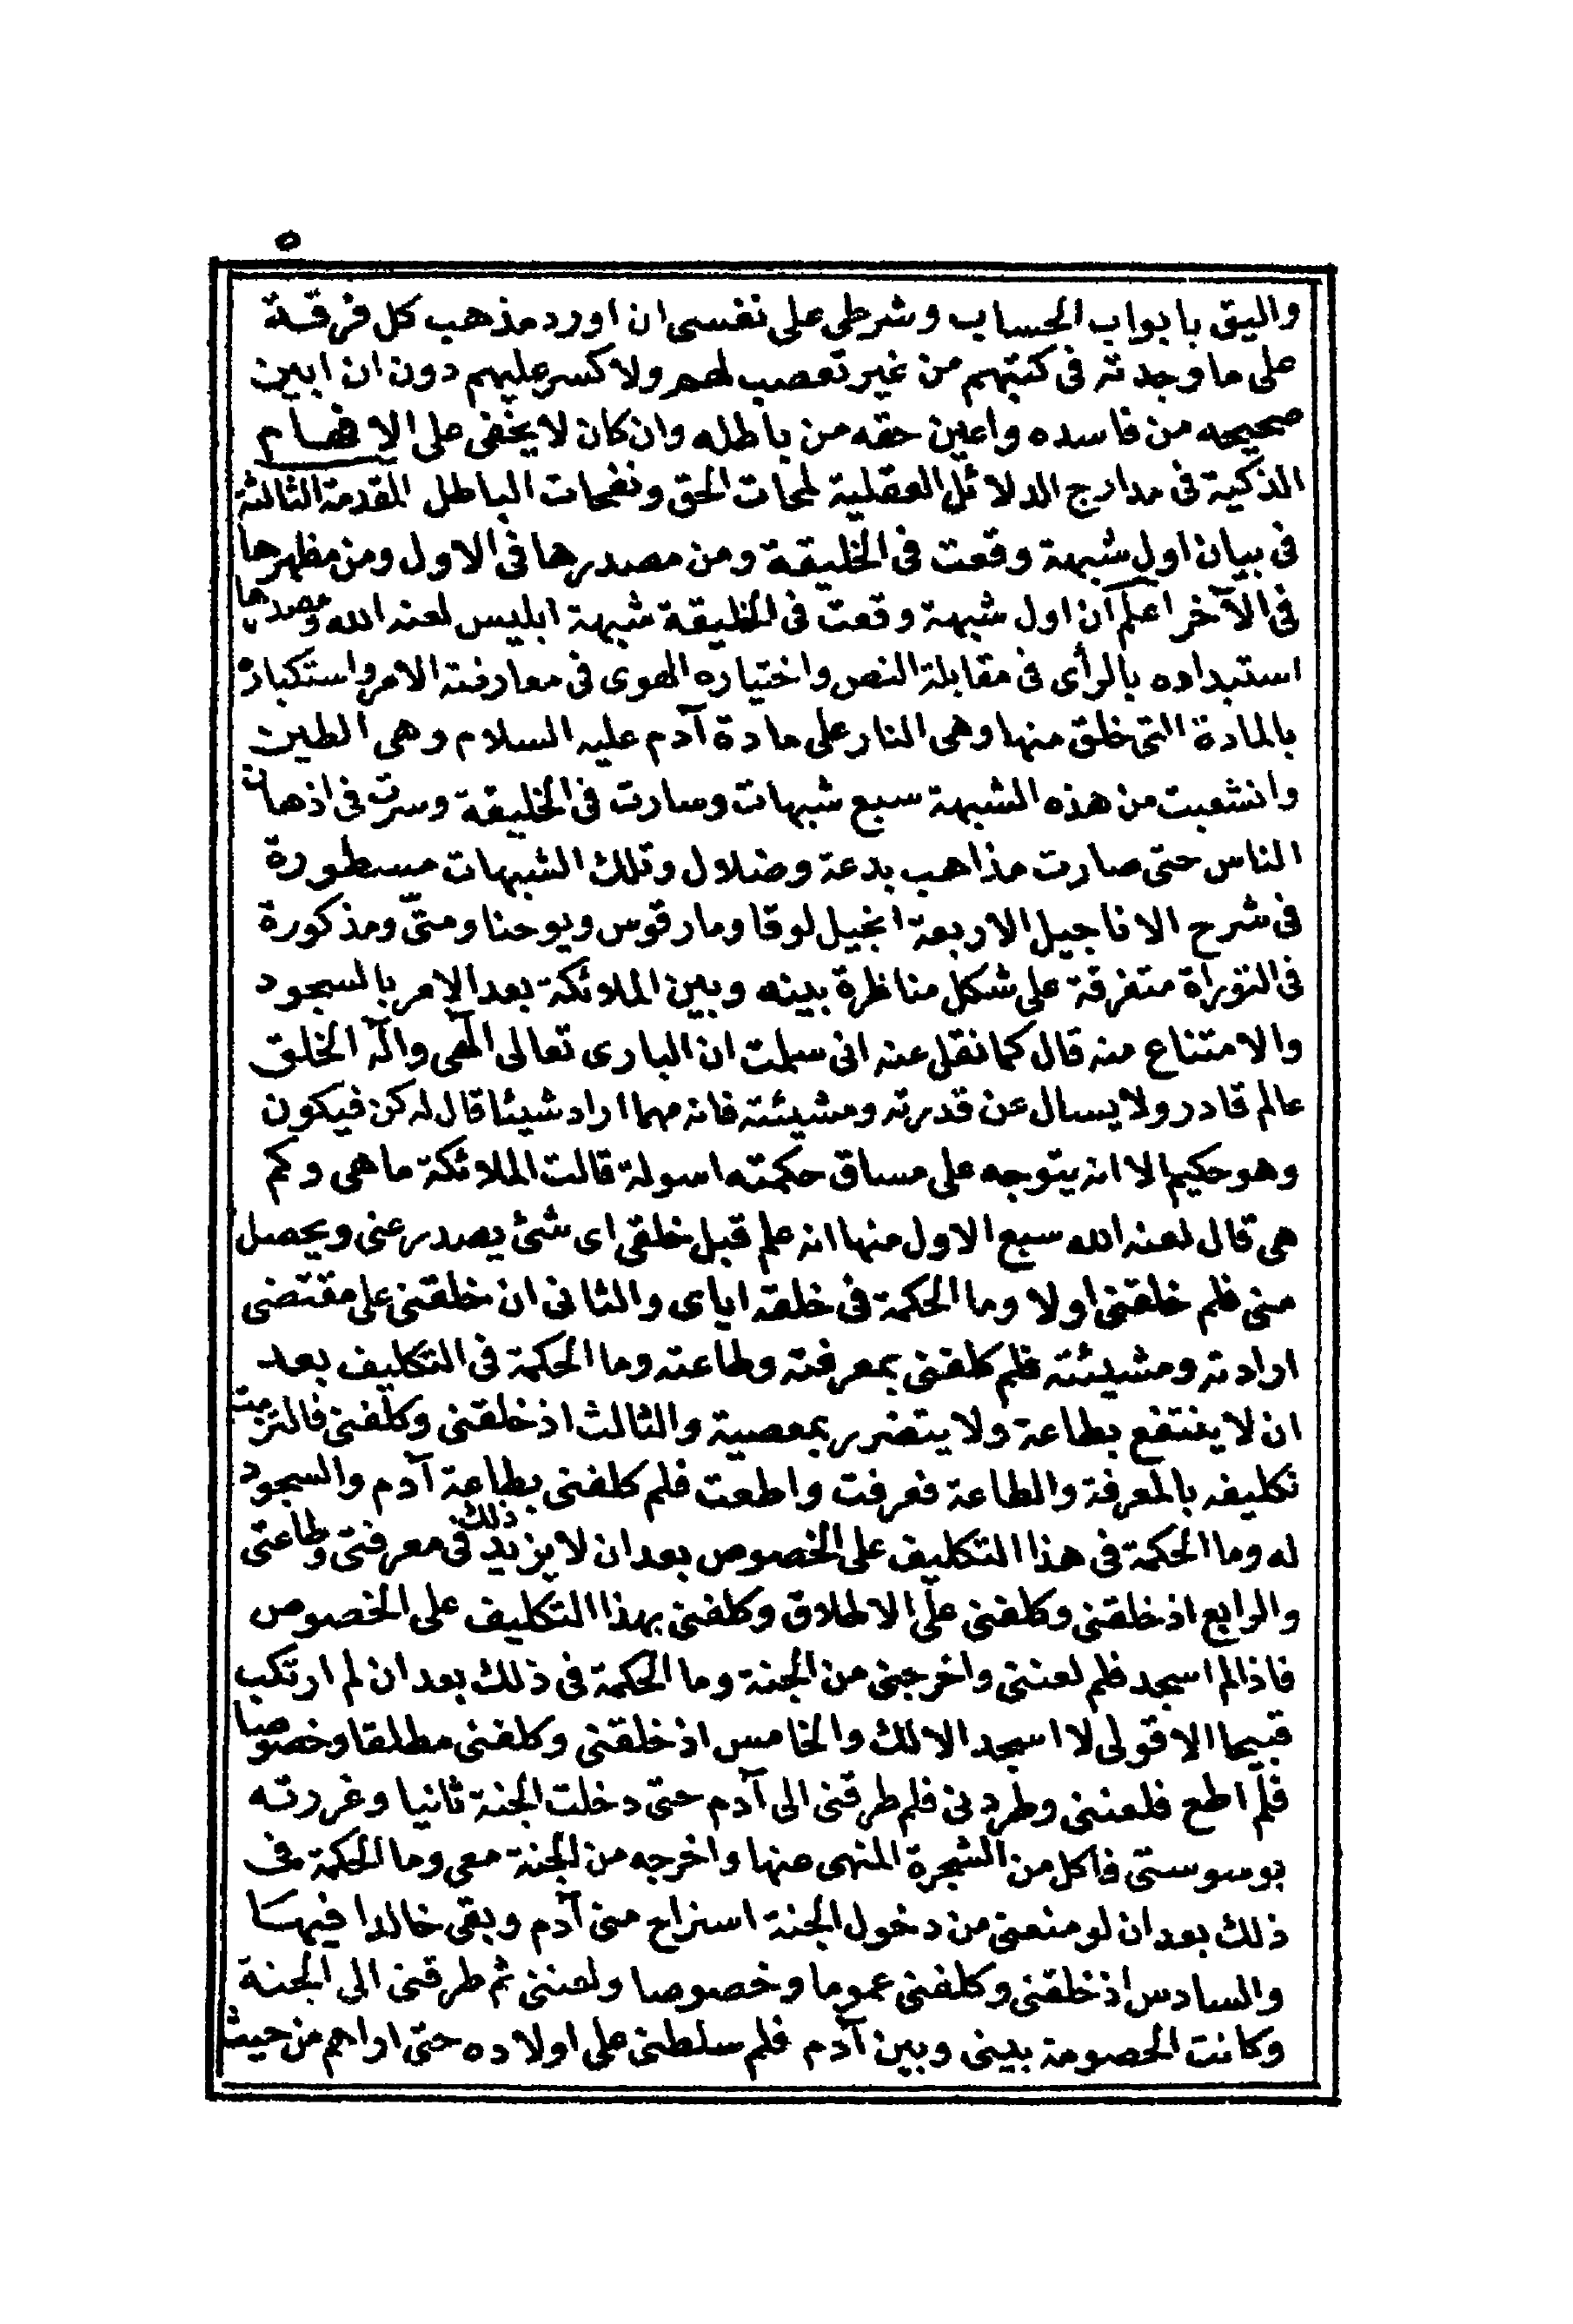 ٥
واليق بابواب الحساب وشرطى على نفسى ان اورد مذهب كل فرقة
على ما وجدته فى كتبهم من غير تعصب لهم ولا كسر عليهم دون ان ابين
صحيحه من فاسده واعين حقه من باطله وان كان لا يخفى على الافهام
الذكية فى مدارج الدلائل العقلية لمحات الحق ونفحات الباطل المقدمة الثالثة
فى بيان اول شبهة وقعت فى الخليقة ومن مصدرها فى الاول ومن مظهرها
فى الآخر اعلم ان اول شبهة وقعت فى الخليقة شبهة ابليس لعنه الله ومصدرها
استبداده بالرأى فى مقابلة النص واختياره الهوى فى معارضة الامر واستكباره
بالمادة التى خلق منها وهى النار على مادة آدم عليه السلام وهى الطين
وانشعبت من هذه الشبهة سبع شبهات وسارت فى الخليقة وسرت فى اذهان
الناس حتى صارت مذاهب بدعة وضلال وتلك الشبهات مسطورة
فى شرح الاناجيل الاربعة انجيل لوقا ومارقوس ويوحنا ومتّى ومذكورة
فى التوراة متفرقة على شكل مناظرة بينه وبين الملائكة بعد الامر بالسجود
والامتناع منه قال كما نقل عنه انى سلمت ان البارى تعالى الهى واله الخلق
عالم قادر ولا يسال عن قدرته ومشيئته فانه مهما اراد شيئا قال له كن فيكون
وهو حكيم الا انه يتوجه على مساق حكمته اسولة قالت الملائكة ما هى وكم
هى قال لعنه الله سبع الاول منها انه علم قبل خلقى اى شئ يصدر عنى ويحصل
منى فلم خلقنى اولا وما الحكمة فى خلقه اياى والثانى ان خلقنى على مقتضى
ارادته ومشيئته فلم كلفنى بمعرفته وطاعته وما الحكمة فى التكليف بعد
ان لا ينتفع بطاعة ولا يتضرر بمعصية والثالث اذ خلقنى وكلفنى فالتزمت
تكليفه بالمعرفة والطاعة فعرفت واطعت فلم كلفنى بطاعة آدم والسجود
له وما الحكمة فى هذا التكليف على الخصوص بعد ان لا يزيد ذلك فى معرفتى وطاعتى
والرابع اذ خلقنى وكلفنى على الاطلاق وكلفنى بهذا التكليف على الخصوص
فاذا لم اسجد فلم لعننى واخرجنى من الجنة وما الحكمة فى ذلك بعد ان لم ارتكب
قبيحا الا قولى لا اسجد الا لك والخامس اذ خلقنى وكلفنى مطلقا وخصوصا
فلم اطع فلعننى وطردنى فلم طرقنى الى آدم حتى دخلت الجنة ثانيا وغررته
بوسوستى فاكل من الشجرة المنهى عنها واخرجه من الجنة معى وما الحكمة فى
ذلك بعد ان لو منعنى من دخول الجنة استراح منى آدم وبقى خالدا فيها
والسادس اذ خلقنى وكلفنى عموما وخصوصا ولعننى ثم طرقنى الى الجنة
وكانت الخصومة بينى وبين آدم فلم سلطنى على اولاده حتى اراهم من حيث